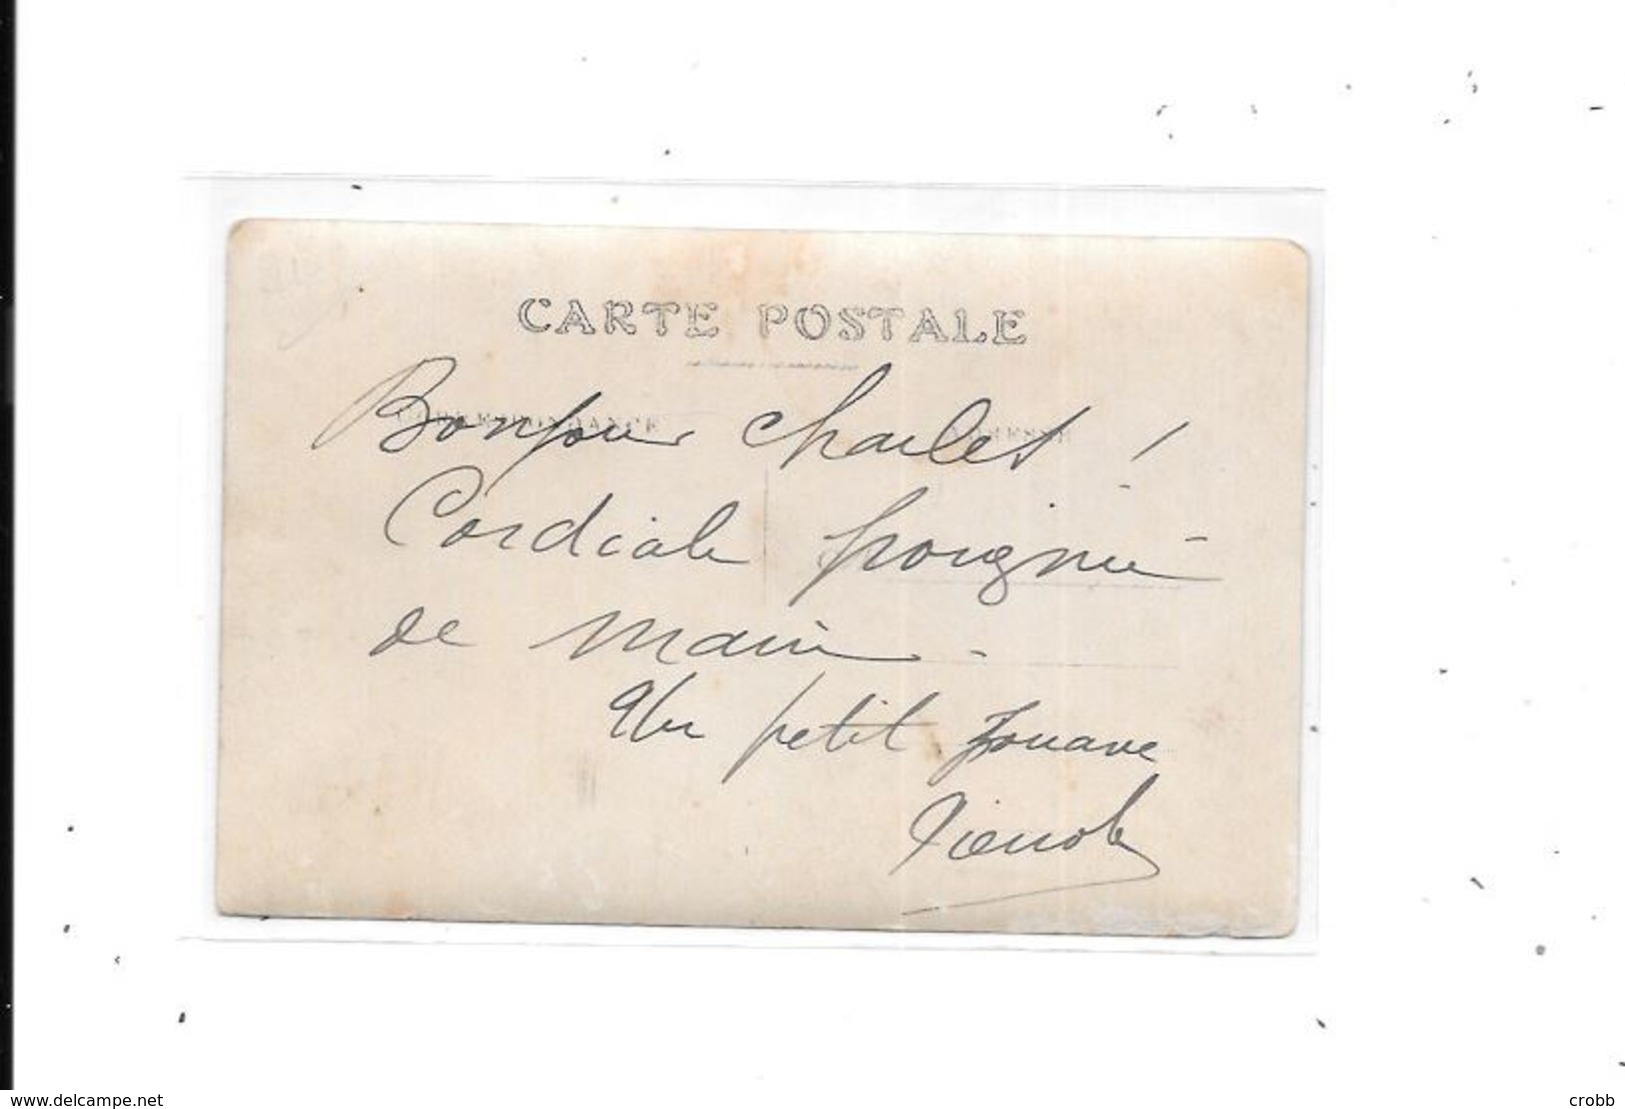 CARTE POSTALE
CORRESPONDANCE ADRESSE
Bonjour Charles !
Cordiale poignée
de main.
Un petit zouave
www.delcampe.net
crobb